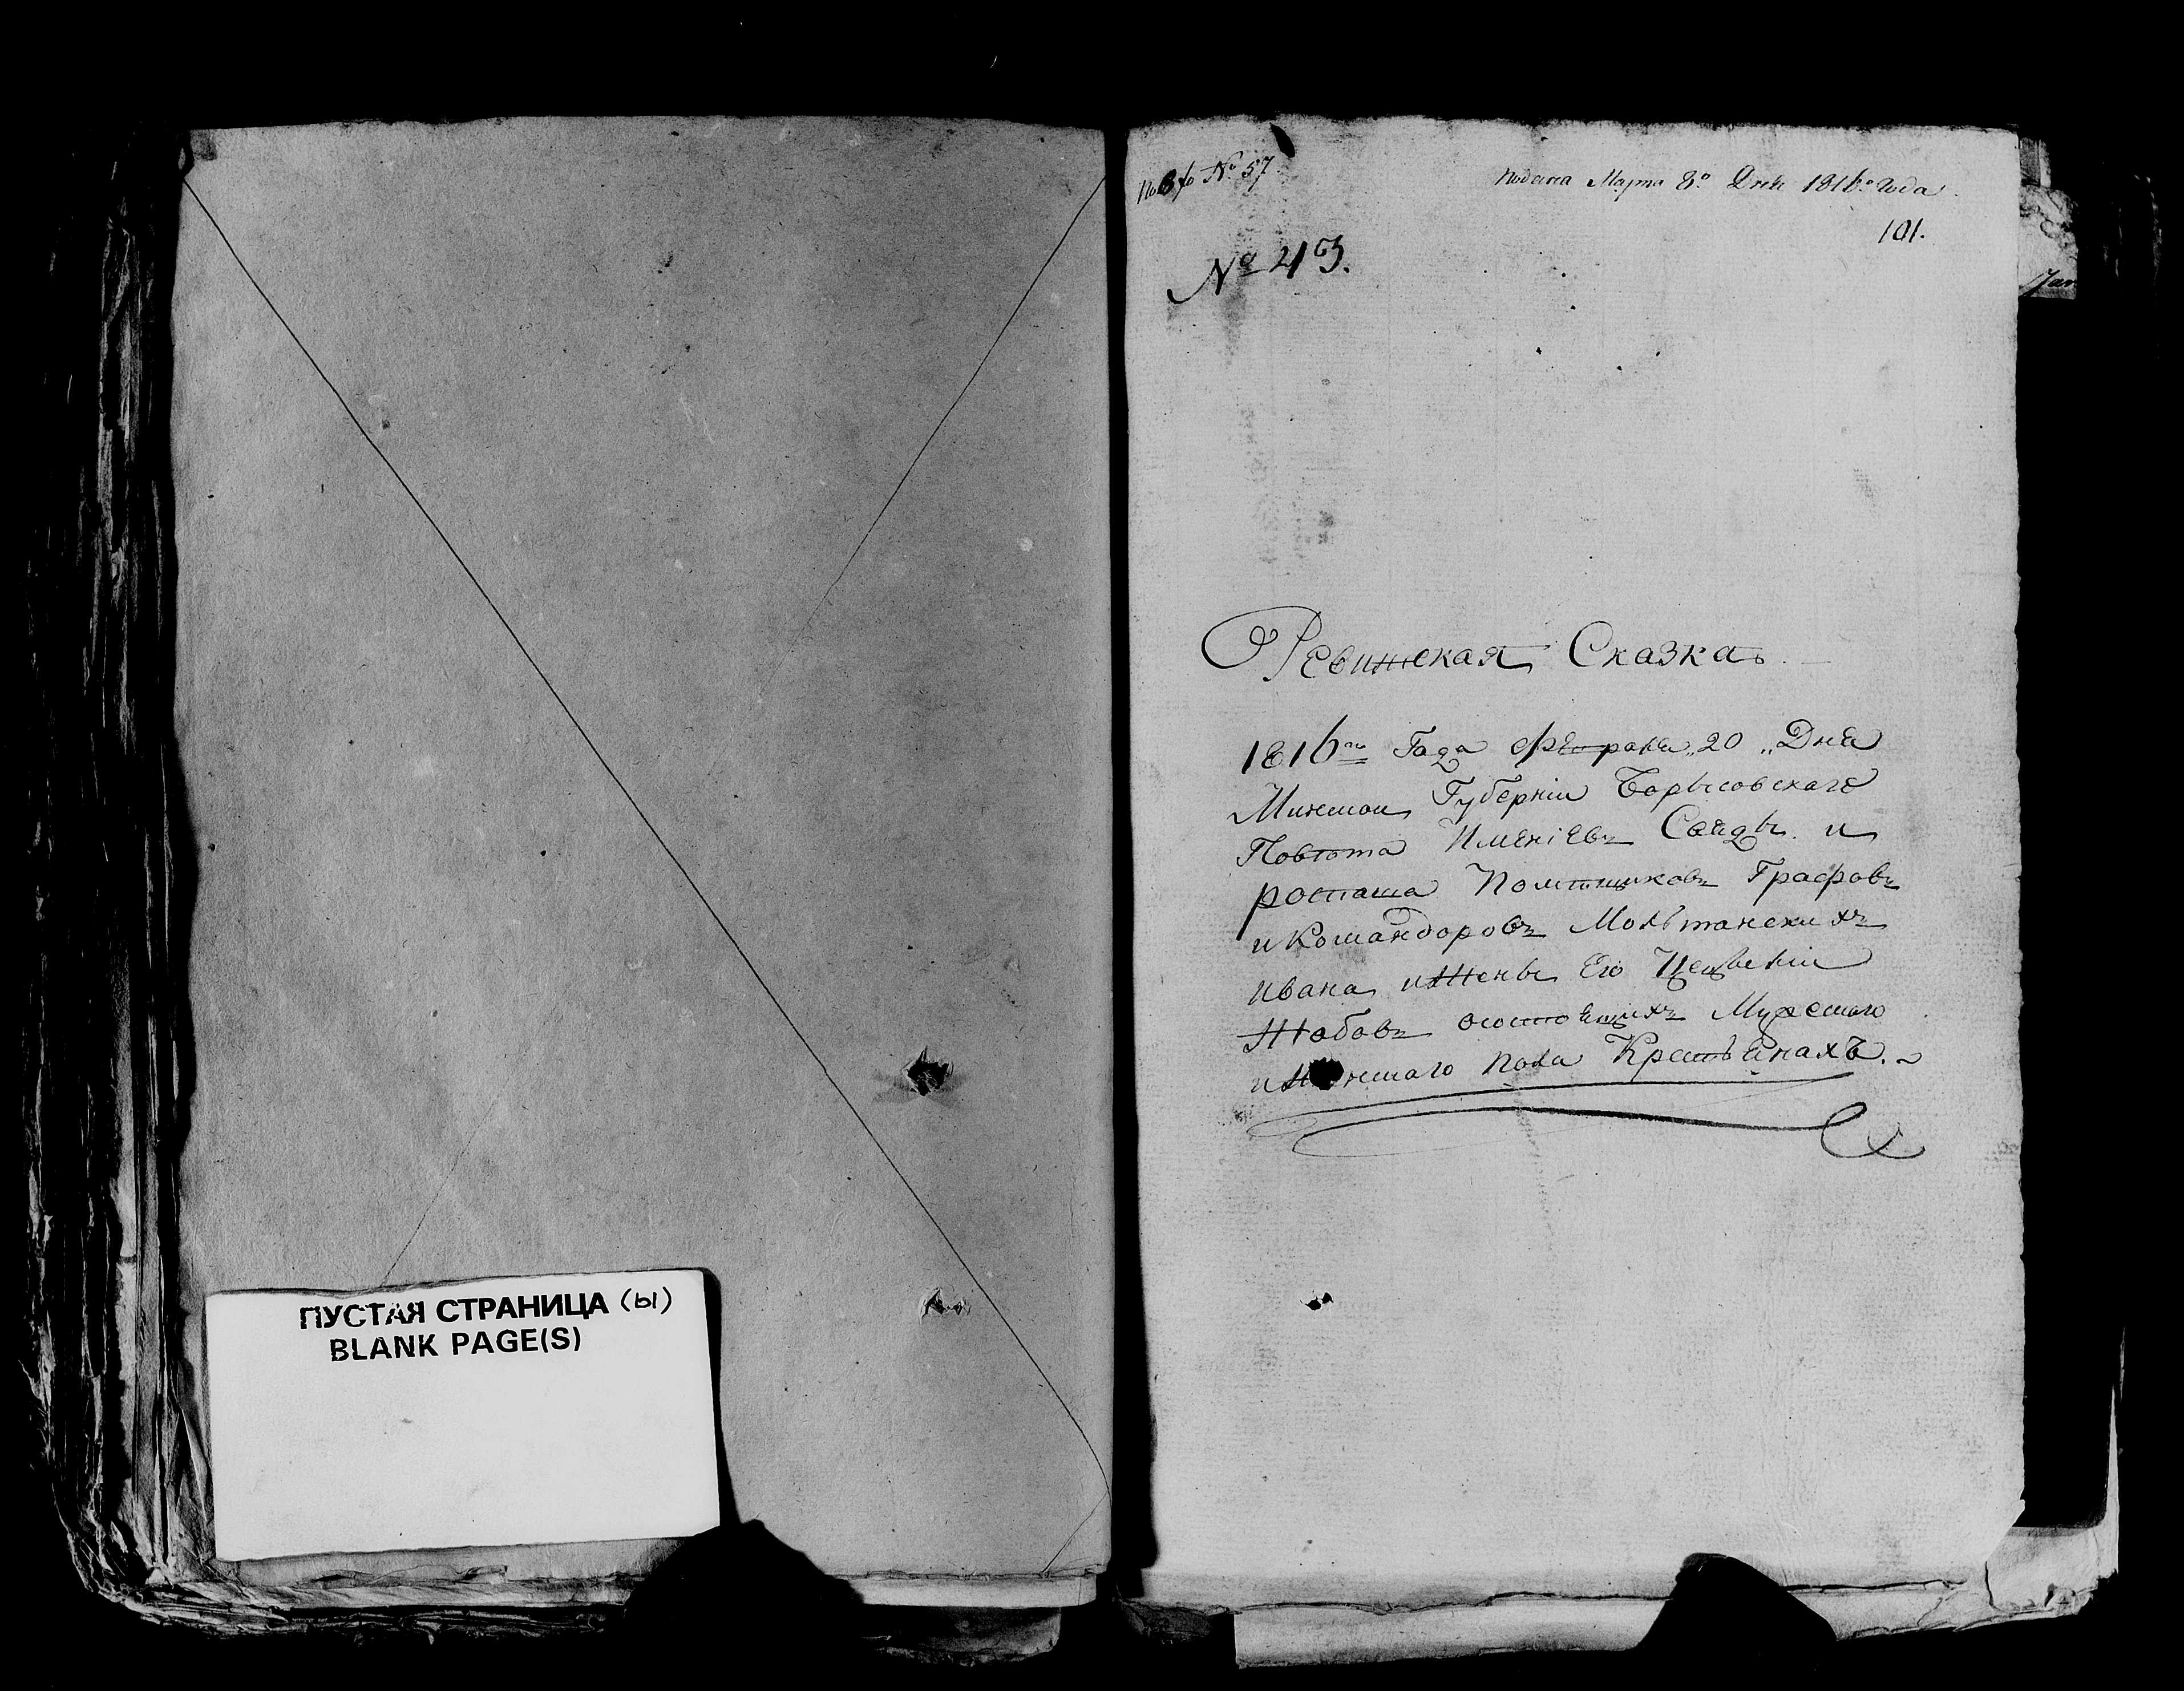 ПУСТАЯ СТРАНИЦА (ы)
BLANK PAGE(S)
№ 57
Подана Марта 8о Дня 1816о года
101.
№ 43.
Ревижская Сказка
1816го Года Февраля 20 „ Дня
Минской Губерніи Борысовскаго
Повѣта Именіевъ и
Помѣщиковъ Графовъ
и Командоровъ Мольтанскихъ
Ивана и Жены Его
Жабовъ осостоящихъ Мужскаго
и Женскаго пола Крестьянахъ.